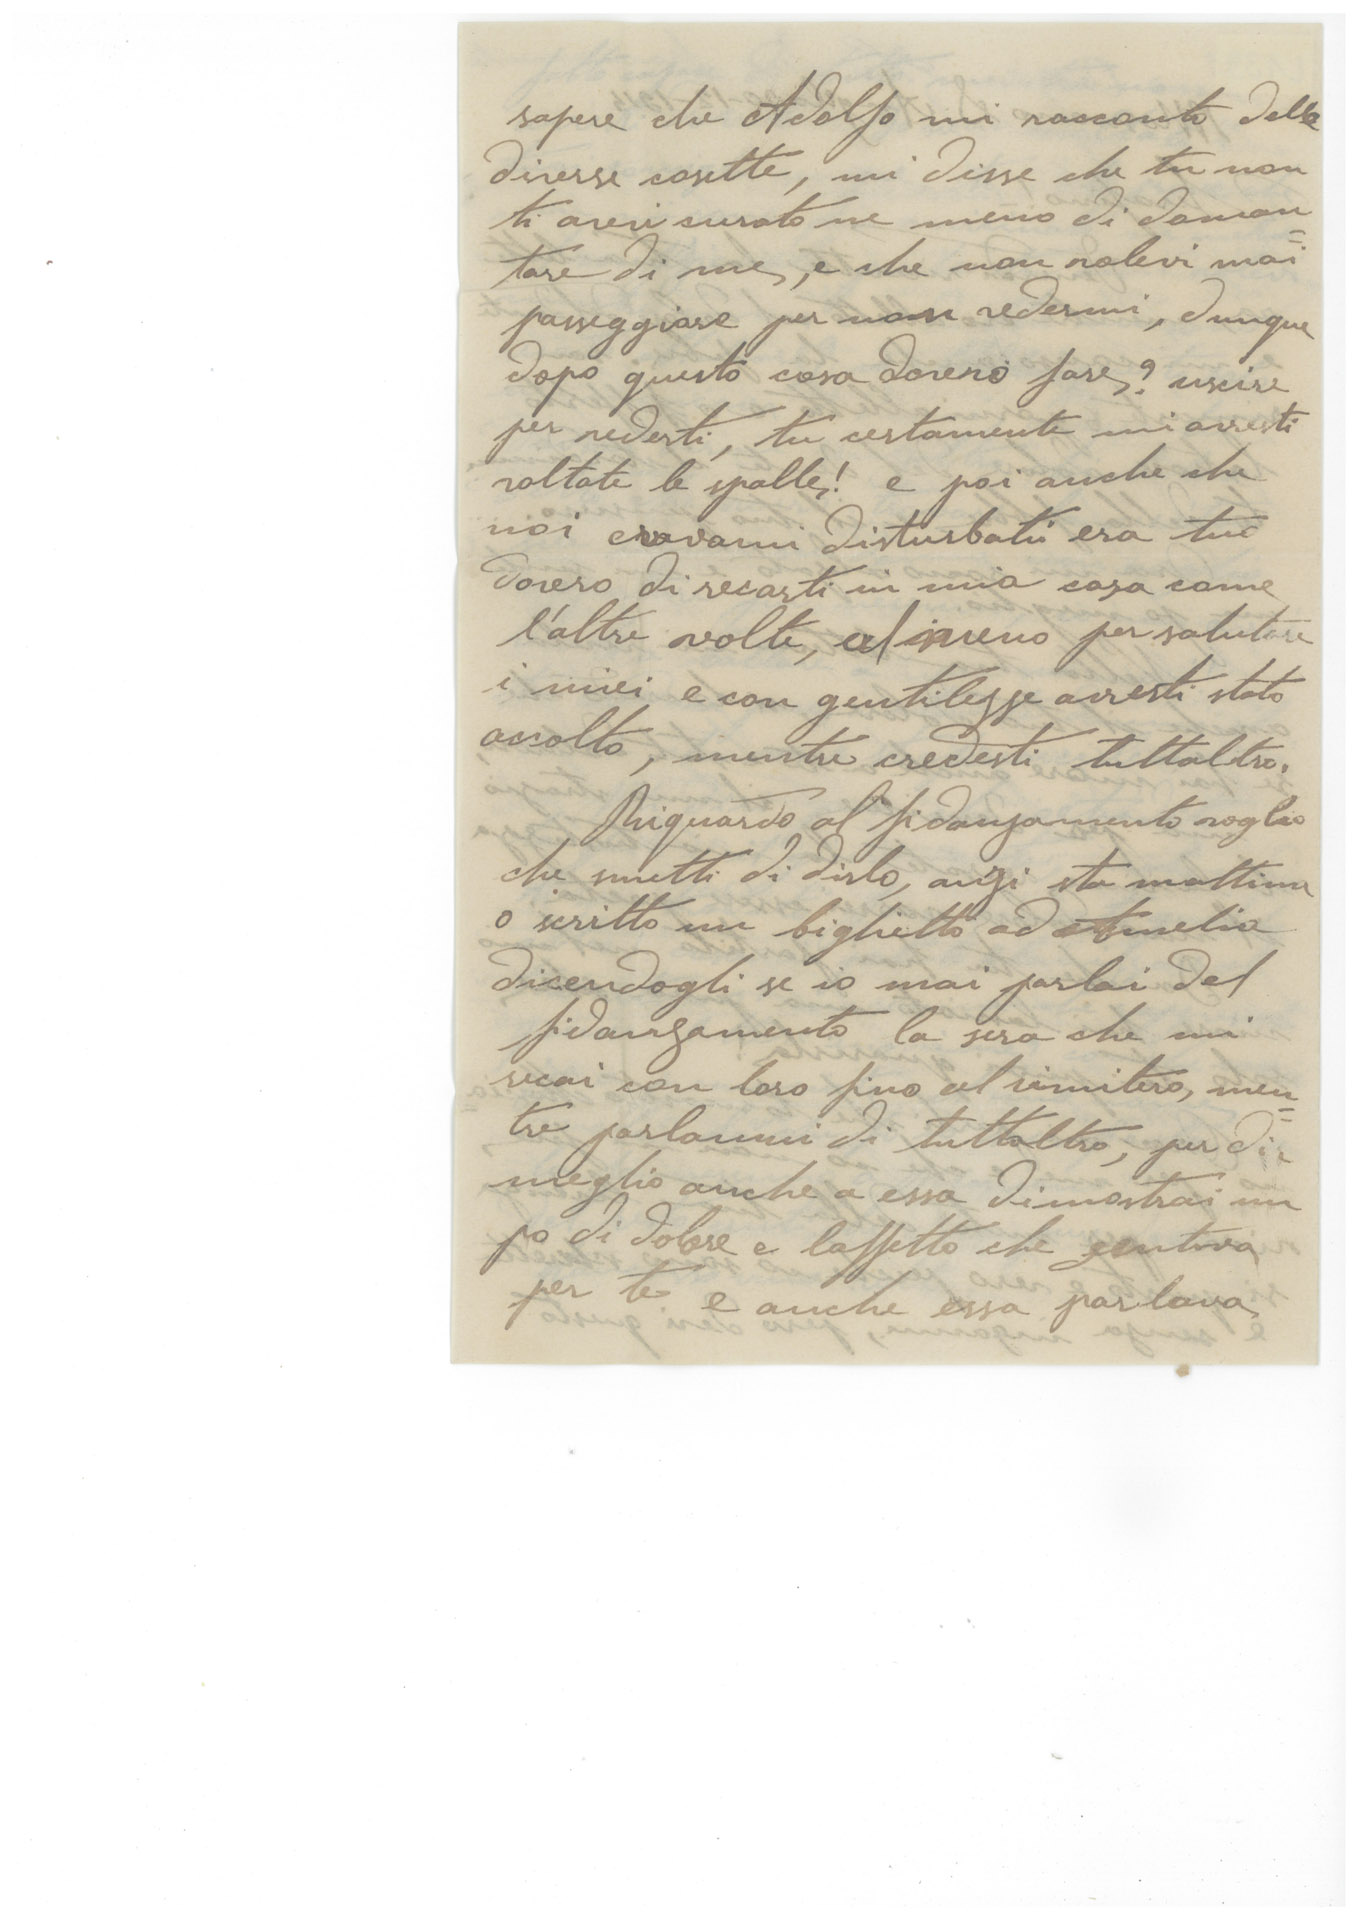 sapere che Adolfo mi racconto delle
diverse cosette, mi disse che tu non
ti averi curato ne meno di doman=
tare di me, e che non volevi mai
passeggiare per non vedermi, dunque
dopo questo cosa dovevo fare,? uscire
per vederti, tu certamente mi avresti
voltate le spalle,! e poi anche che
noi eravami disturbati era tuo
dovero di recarti in mia casa come
l'altre volte, al meno per salutare
i miei e con gentilezze avresti stato
accolto, mentre credesti tuttaltro.
Riguardo al fidanzamento voglio
che smetti di dirlo, anzi sta mattina
o scritto un biglietto ad Amelia
dicendogli se io mai parlai del
fidanzamento la sera che mi
recai con loro fino al cimitero, men=
tre parlammi di tuttaltro, per dir
meglio anche a essa dimostrai un
po di dolore e laffetto che sentiva
per te e anche essa parlava